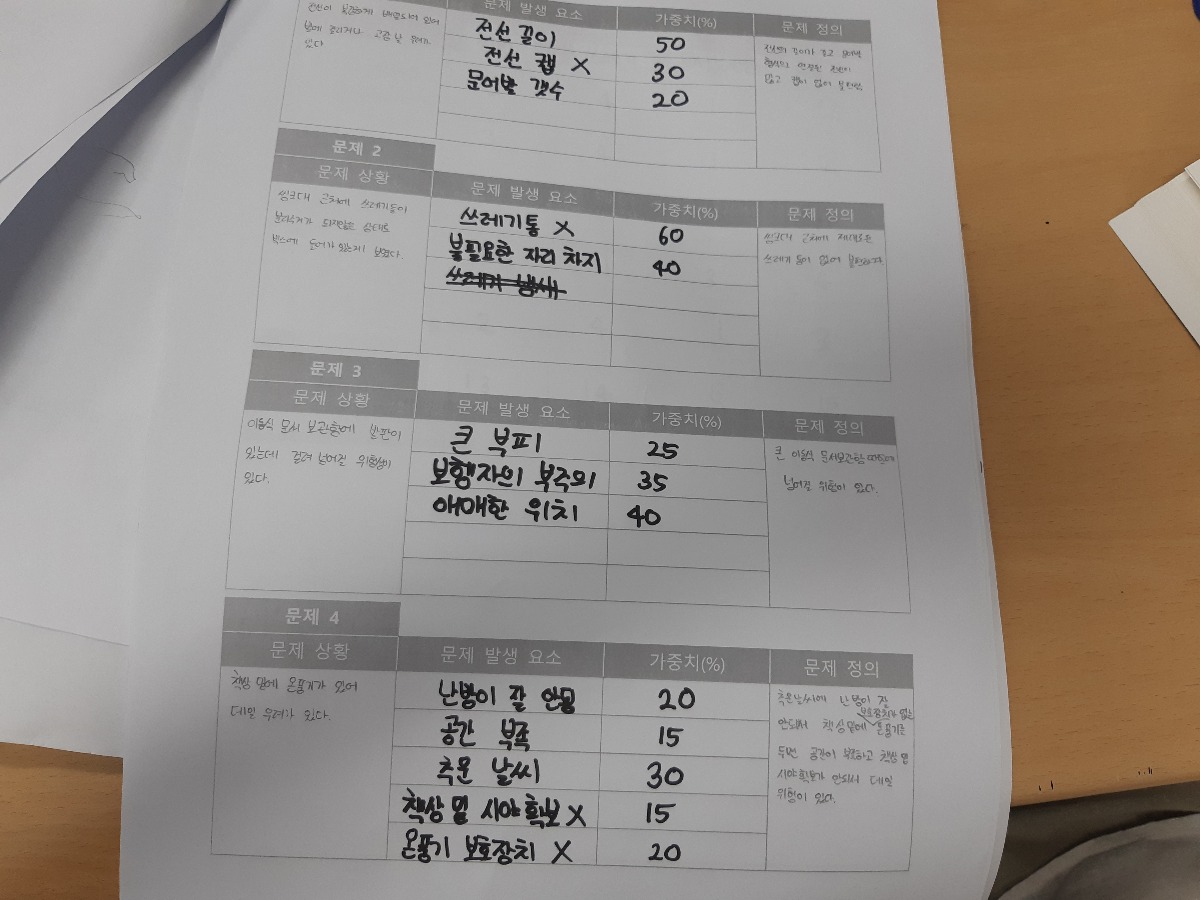 전선이 복잡하게 배열되어 있어
발에 걸리거나 고장날 우려가
있다
문제 발생 요소
가중치(%)
문제 정의
전선 길이
50
전선 캡 X
30
문어발 갯수
20
전선의 길이가 길고 문어발
형식의 연결된 전선이
많고 캡이 없어
문제 2
문제 상황
문제 발생 요소
가중치(%)
문제 정의
씽크대 근처에 쓰레기들이
분리수거가 되지않은 상태로
박스에 들어가 있는게 보였다.
쓰레기통 X
60
불필요한 자리 차지
40
쓰레기 냄새
씽크대 근처에 제대로된
쓰레기 통이 없어
문제 3
문제 상황
문제 발생 요소
가중치(%)
문제 정의
이동식 문서 보관함에 발판이
있는데 걸려 넘어질 위험성이
있다.
큰 부피
25
보행자의 부주의
35
애매한 위치
40
큰 이동식 문서보관함 때문에
넘어질 위험이 있다.
문제 4
문제 상황
문제 발생 요소
가중치(%)
문제 정의
책상 밑에 온풍기가 있어
데일 우려가 있다.
난방이 잘 안됨
20
공간 부족
15
추운 날씨
30
책상 밑 시야 확보 X
15
온풍기 보호장치 X
20
추운날씨에 난방이 잘
보호장치가 없는
안되서 책상밑에 온풍기를
두번 공간이 부족하고 책상 밑
시야 확보가 안되서 데일
위험이 있다.